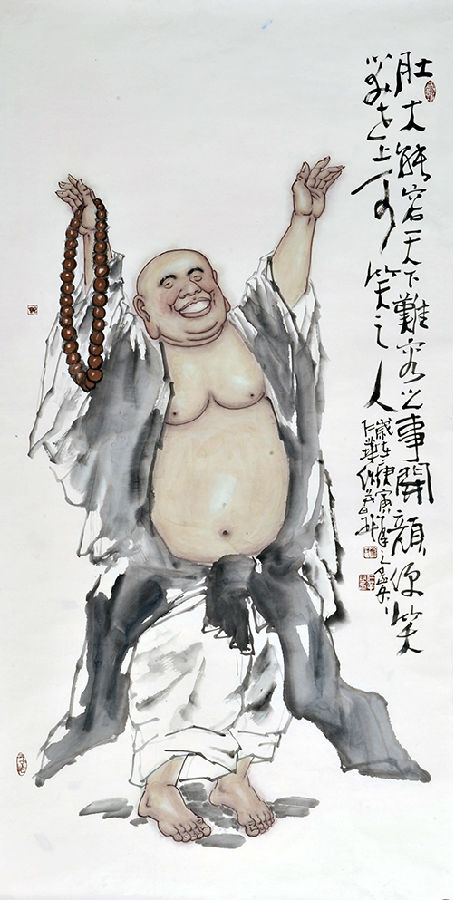 肚大能容天下難容之事開顏便笑
笑世上可笑之人
歲在庚寅